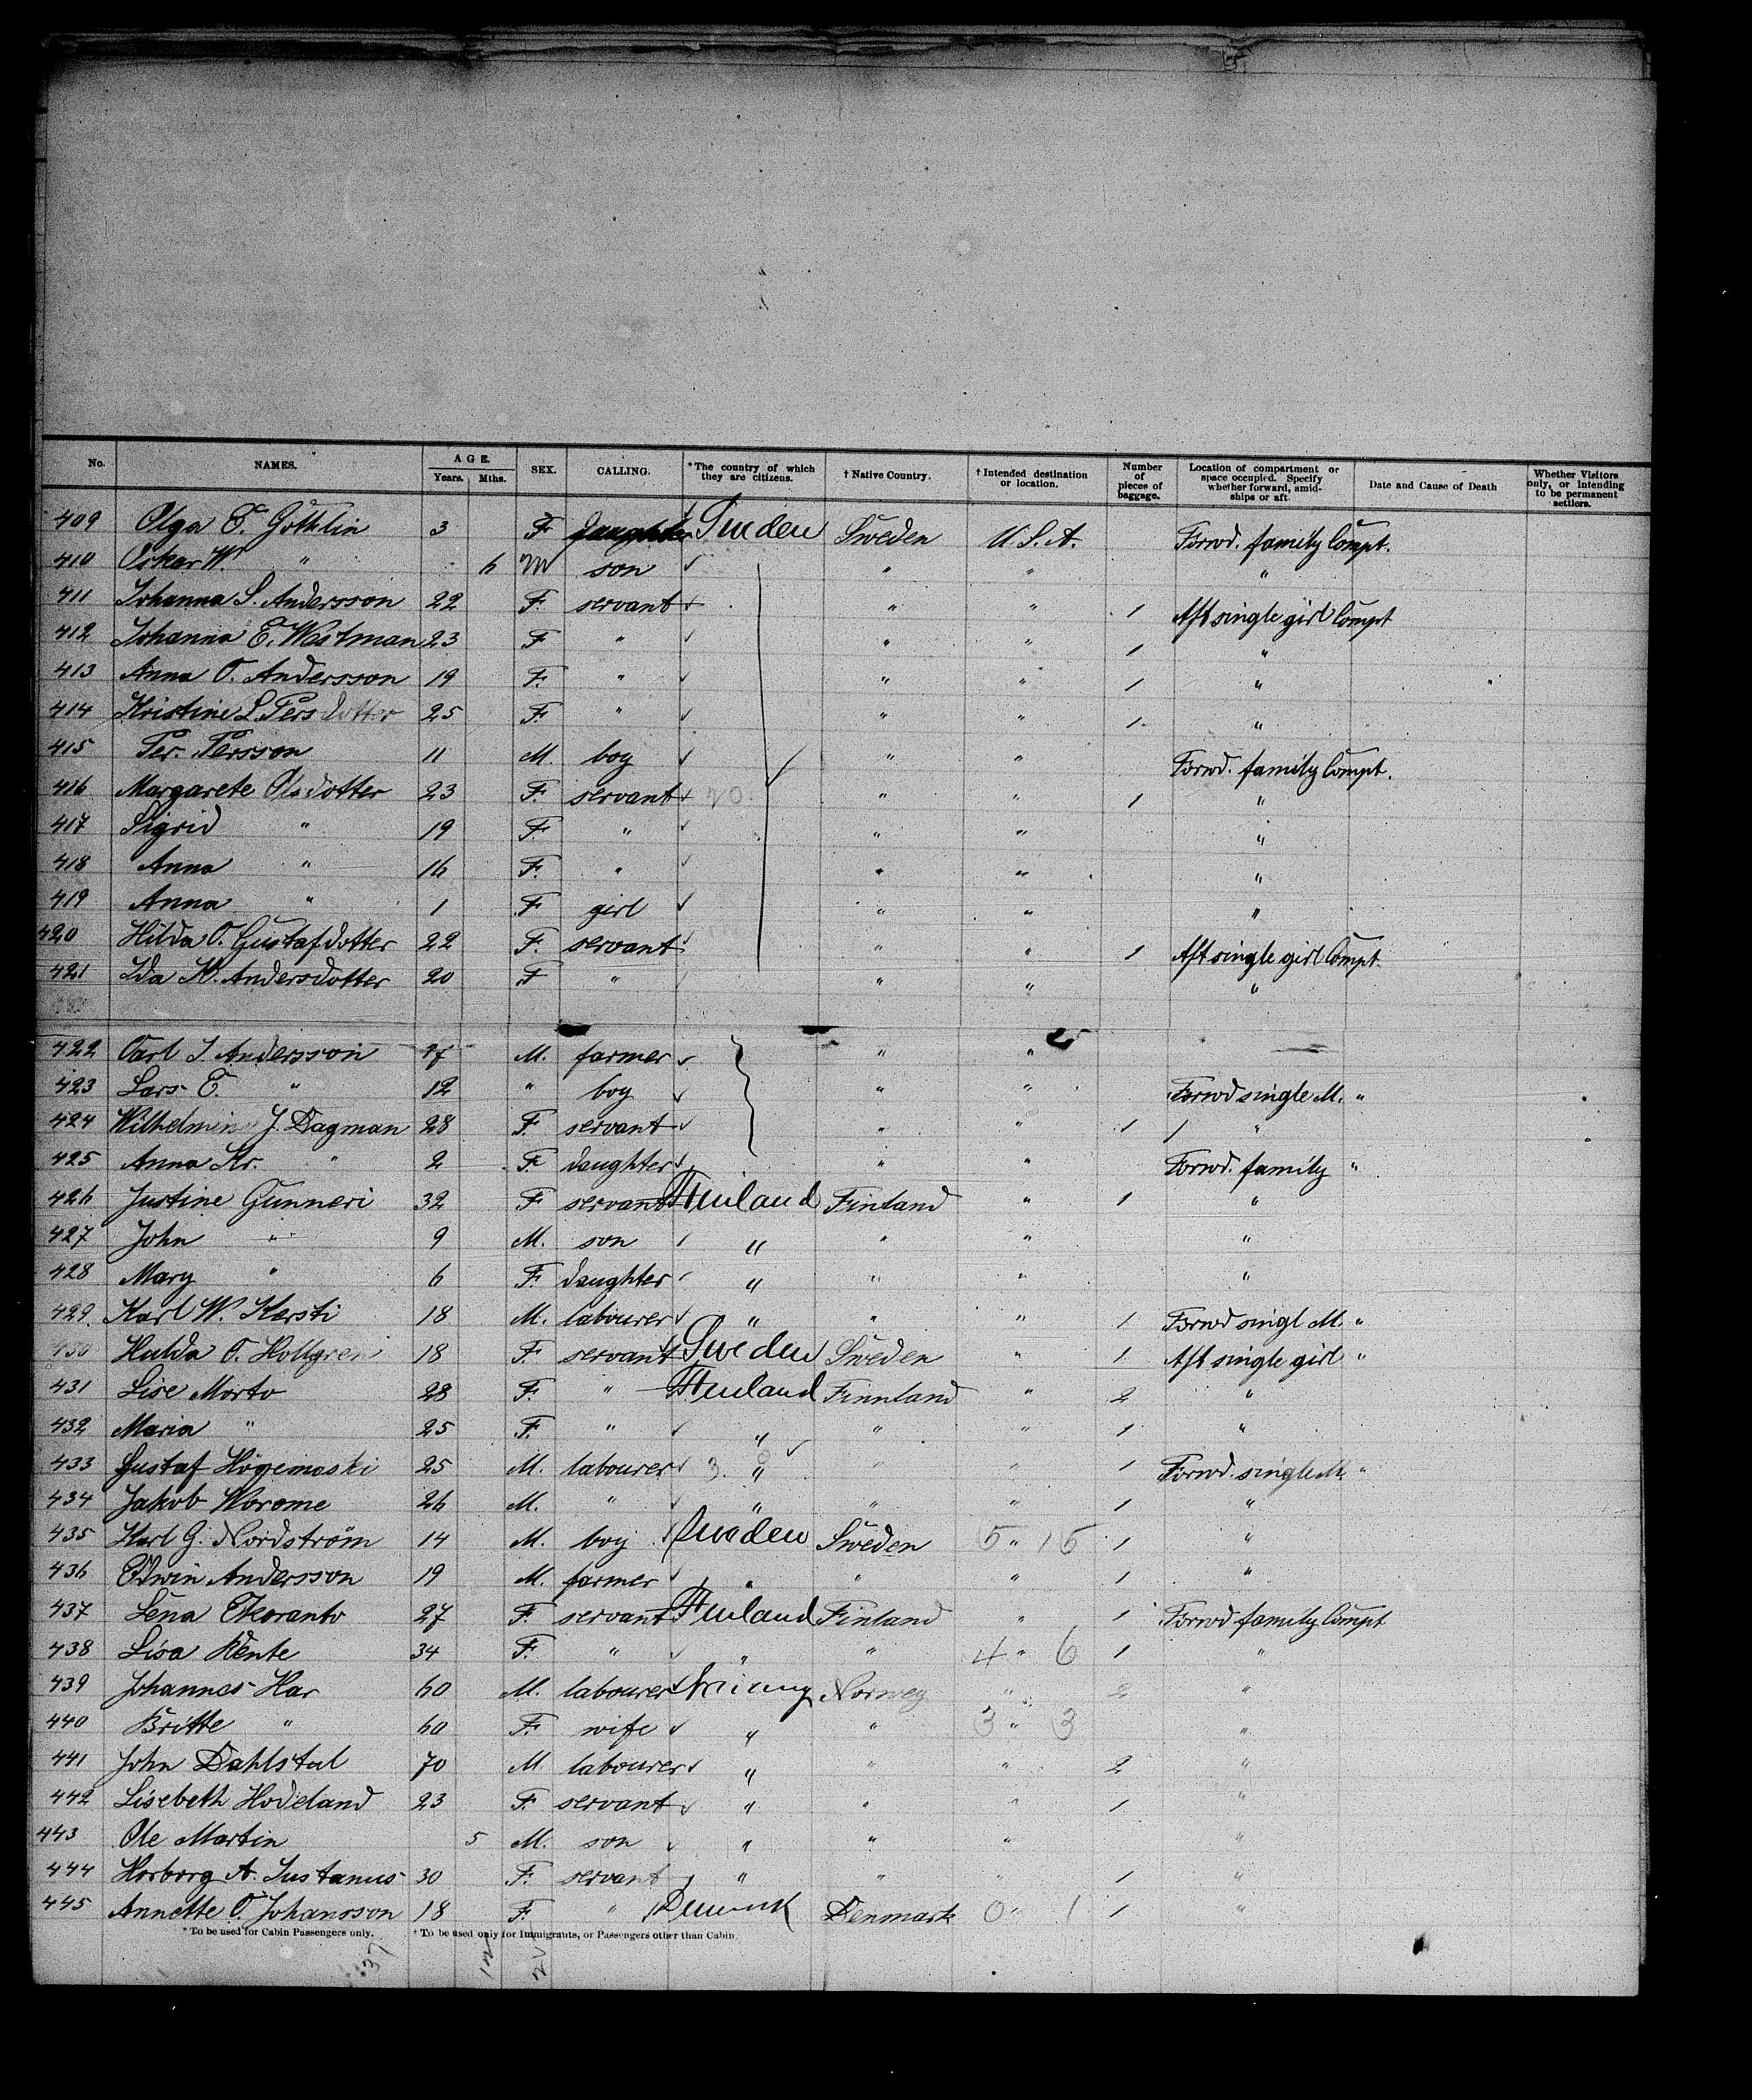 No. NAMES. AGE. Years. Mths. SEX. CALLING. *The country of which they are citizens. † Native Country. † Intended destination or location. Number of pieces of baggage. Location of compartment or space occupied. Specify whether forward, amidships or aft. Date and Cause of Death Whether Visitors only, or intending to be permanent settlers.
409 Olga E. Gothlin 3 F daughter Sweden Sweden U.S.A. Forwd. family Compt.
410 Oskar W. " 6 M son " " "
411 Johanna S. Andersson 22 F. servant " " 1 Aft single girl Compt
412 Johanna E. Westman 23 F " " " 1 "
413 Anna O. Andersson 19 F. " " " 1 "
414 Kristine L. Persdotter 25 F. " " " 1 "
415 Per. Persson 11 M. boy " " Forwd. family Compt.
416 Margarete Olsdotter 23 F. servant 20 " " 1 "
417 Sigrid " 19 F. " " " "
418 Anna " 16 F. " " " "
419 Anna " 1 F girl " " "
420 Hilda O. Gustafdotter 22 F. servant " " 1 Aft single girl Compt.
421 Ida K. Andersdotter 20 F " " " "
422 Carl J. Andersson 17 M. farmer " "
423 Lars E. " 12 " boy " " Forwd single M. "
424 J. Dagman 28 F. servant " " 1 "
425 Anna Kr. " 2 F daughter " " Forwd. family "
426 Justine Gunneri 32 F servant Finland Finland " 1 "
427 John " 9 M. son " " " "
428 Mary " 6 F. daughter " " " "
429. Karl W. Kersti 18 M. labourer " " " 1 Forwd singl M. "
430 Hulda O. Hollgren 18 F. servant Sweden Sweden " 1 Aft single girl "
431 Lise Morto 28 F. " Finland Finnland " 2 "
432 Maria " 25 F. " " " " 1 "
433 Gustaf 25 M. labourer 3. " " " 1 Forwd. single M. "
434 Jakob Worome 26 M. " " " " 1 "
435 Karl G. Nordström 14 M. boy Sweden Sweden 5 " 15 1 "
436 Edwin Andersson 19 M. farmer " " " 1 "
437 Lena 27 F servant Finland Finland " 1 Forwd family Compt
438 Lisa Kente 34 F. " " " 4 " 6 1 "
439 Johannes Har 60 M. labourer Norway Norweg " 2 "
440 Britte " 60 F. wife " " 3 " 3 "
441 John Dahlstul 70 M. labourer " " " 2 "
442 Lisebeth Hodeland 23 F. servant " " " 1 "
443 Ole Martin 5 M. son " " " "
444 Horborg A. 30 F. servant " " " 1 "
445 Annette O. Johansson 18 F. " Denmark Denmark 0 " 1 1 "
* To be used for Cabin Passengers only. † To be used only for Immigrants, or Passengers other than Cabin.
37 12 21